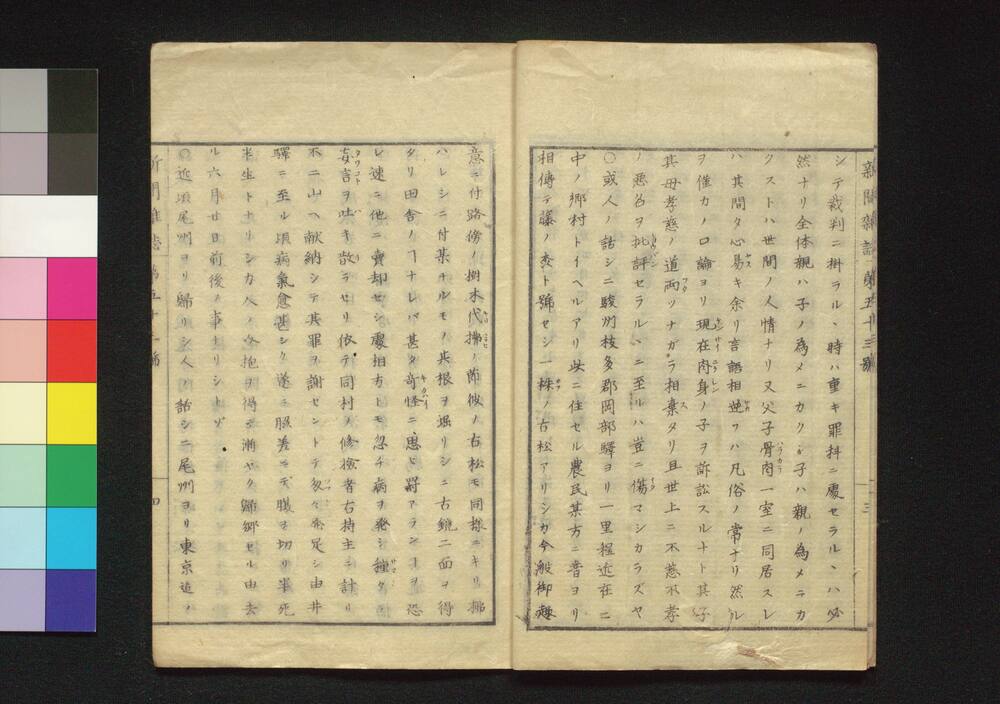 新聞雑誌第五十三號
シテ裁判ニ掛ラル、時ハ重キ罪科ニ處セラル、ハ必
然ナリ全体親ハ子ノ為メニカクシ子ハ親ノ為メニカ
クストハ世間ノ人情ナリ又父子骨肉一室ニ同居スレ
ハ其間タ心易キ余リ言語相逆フハ凡俗ノ常ナリ然ル
ヲ僅カノ口論ヨリ現在肉身ノ子ヲ訴訟スルナト其子
其母孝慈ノ道両ツナガラ相棄タリ且世上ニ不慈不孝
ノ悪名ヲ批評セラル、ニ至ルハ豈ニ傷マシカラズヤ
〇或人ノ話シニ駿州枝多郡岡部驛ヨリ一里程近在ニ
中ノ郷村トイヘルアリ此ニ住セル農民某方ニ昔ヨリ
相傳テ藤ノ森ト號セシ一株ノ古松アリシカ今般御趣
三
意ニ付路傍ノ樹木代拂ノ節彼ノ古松モ同様ニキリ拂
ハレシニ付某ナルモノ其根ヲ堀リシニ古鏡二面ヲ得
タリ田舎ノヿナレバ甚タ奇怪ニ思ヒ罸アランヿヲ恐
レ速ニ他ニ賣却セシ處相方トモ忽チ病ヲ発シ種々
妄言ヲ吐キ散ラセリ依テ同村ノ修檢者右持主ニ計リ
不二山ヘ献納シテ其罪ヲ謝セントテ発足シ由井
驛ニ至ル頃病氣愈甚シク遂ニ服差ニテ腹ヲ切リ半死
半生トナリシカ人ノ介抱ヲ得テ漸ヤク歸郷セル由去
ル六月廿日前後ノ事ナリシトゾ
〇近頃尾州ヨリ歸リシ人ノ話シニ尾州ヨリ東京迠ノ
四